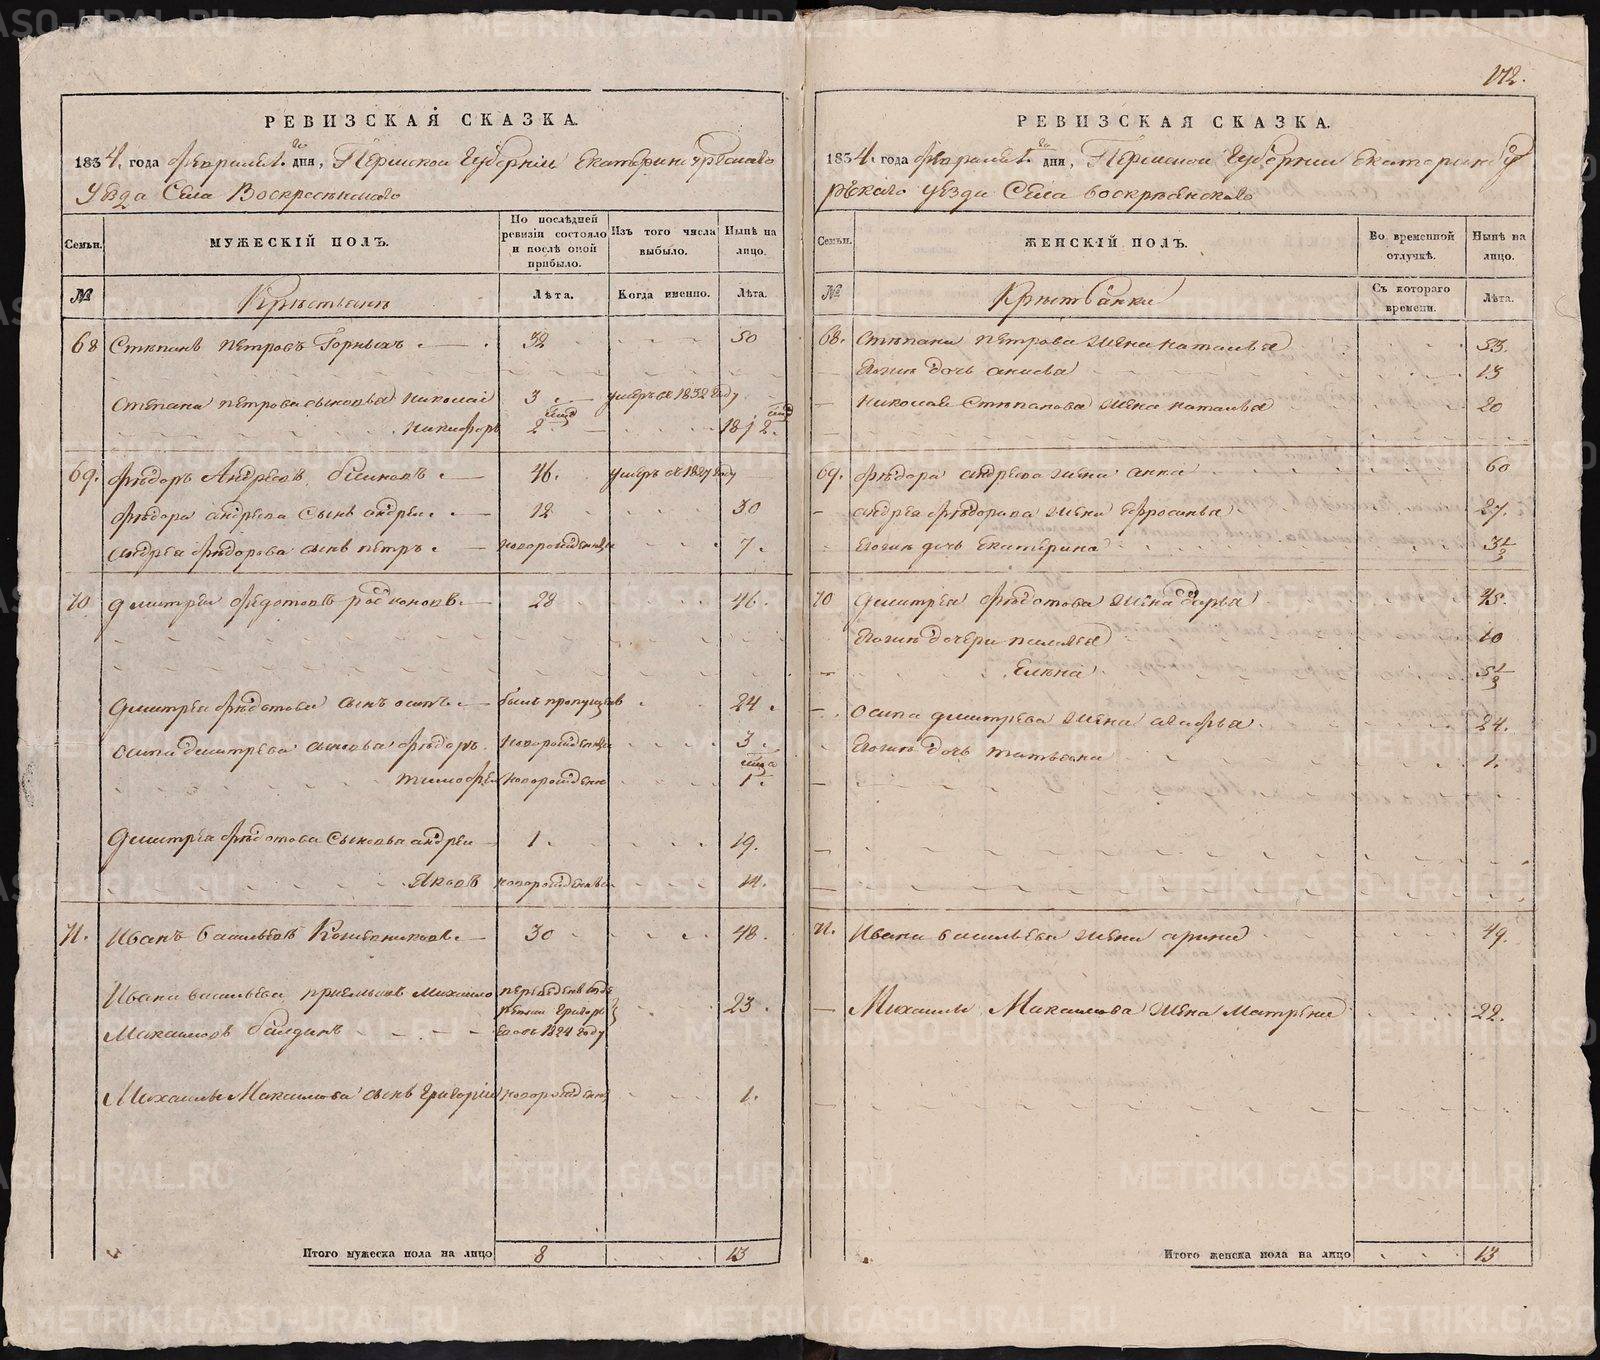 172.
РЕВИЗСКАЯ СКАЗКА.
1834. года февраля 1. дня, Пермской Губернии Екатеринбургскаго
Уезда Села Воскресенскаго
Семьи. МУЖЕСКІЙ ПОЛЪ. По послѣдней ревизіи состояло и послѣ оной прибыло. Изъ того числа выбыло. Нынѣ на лицо.
№ Крестьянъ Лѣта. Когда именно. Лѣта.
68 Степанъ Петровъ Горныхъ 32 50
Степана Петрова сыновья Николай 3 умеръ въ 1832 году
Никифоръ 2 18 1/2
69. Федоръ Андреевъ 46. умеръ въ 1827 году
Федора Андреева сынъ Андрей 12 30
Андрея Федорова сынъ Петръ новорожденный 7.
70 Дмитрей Федотовъ 28 46.
Дмитрея Федотова сынъ Осипъ былъ пропущенъ 24.
Осипа Дмитрева сыновья Федоръ новорожденный 3.
Тимофей новорожденный 1.
Дмитрея Федотова сыновья Андрей 1. 19.
Яковъ новорожденный 14.
71. Иванъ Васильевъ 30 48.
Ивана Васильева Михайло 23.
Михаилы Максимова сынъ Григорій новорожденный 1.
Итого мужеска пола на лицо 8 13
РЕВИЗСКАЯ СКАЗКА.
1834. года февраля 1. дня, Пермской Губернии Екатеринбу
ргскаго уезда Села Воскресенскаго
Семьи. ЖЕНСКІЙ ПОЛЪ. Во временной отлучкѣ. Нынѣ на лицо.
№ Крестьянки Съ котораго времени. Лѣта.
68. Степана Петрова жена Наталья 53.
дочь Анисья 13
Николая Степанова жена Наталья 20
69. Федора Андреева жена Анна 60
Андрея Федорова жена Ефросинья 27.
дочь Екатерина 3 1/2
70 Дмитрея Федотова жена Дарья 45.
дочери 10
Елена 5 1/2
Осипа Дмитрева жена Агафья 24.
дочь Татьяна 1.
71. Ивана Васильева жена Арина 49.
Михаилы Максимова жена Матрена 22.
Итого женска пола на лицо 13
METRIKI.GASO-URAL.RU